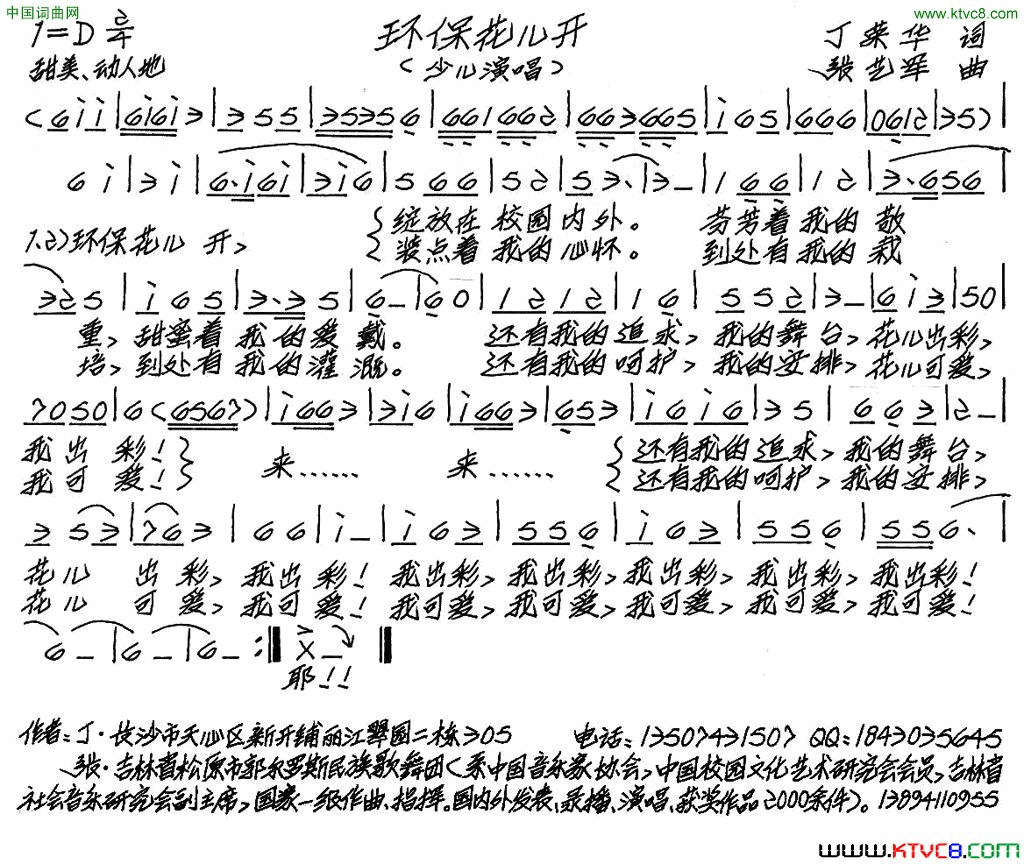 中国词曲网
www.ktvc8.com
1=D 2/4 环保花儿开 丁荣华 词
甜美、动人地 (少儿演唱) 张艺军 曲
(6 i i | 6 i 6 i 3 | 3 5 5 | 3 5 3 5 6 | 6 6 1 6 6 2 | 6 6 3 6 6 5 | i 6 5 | 6 6 6 | 0 6 1 2 | 3 5) |
6 i | 3 i | 6. i 6 i | 3 i 6 | 5 6 6 | 5 2 | 5 3. | 3 - | 1 6 6 | 1 2 | 3. 6 5 6 |
{绽放在 校园内外。 芬芳着 我的 敬
1.2)环保花儿 开, {装点着 我的 心怀。 到处有 我的 栽
3 2 5 | i 6 5 | 3. 3 5 | 6 - | 6 0 | 1 2 1 2 | 1 6 | 5 5 2 | 3 - | 6 i 3 | 5 0 |
重, 甜蜜着 我的爱 戴。 还有我的 追求, 我的舞 台, 花儿出彩,
培, 到处有 我的灌 溉。 还有我的 呵护, 我的安排, 花儿可爱,
7 0 5 0 | 6 (6 5 6 7) | i 6 6 3 | 3 i 6 | i 6 6 3 | 6 5 3 | i 6 i 6 | 3 5 | 6 6 3 | 2 - |
我 出 彩!} 来…… 来…… {还有我的 追求, 我的舞 台,
我 可 爱!} {还有我的 呵护, 我的安排,
3 5 3 | 7 6 3 | 6 6 | i - | i 6 3 | 5 5 6 | i 6 3 | 5 5 6 | 5 5 6. |
花儿 出 彩, 我出 彩! 我出彩, 我出彩, 我出彩, 我出彩, 我出彩!
花儿 可 爱, 我可 爱! 我可爱, 我可爱, 我可爱, 我可爱, 我可爱!
6 - | 6 - | 6 - :‖ X - ‖
耶!!
作者:丁·长沙市天心区新开铺丽江翠园二栋305 电话:13507431507 QQ:1843035645
张·吉林省松原市郭尔罗斯民族歌舞团(系中国音乐家协会,中国校园文化艺术研究会会员,吉林省
社会音乐研究会副主席,国家一级作曲、指挥。国内外发表、录播、演唱、获奖作品2000余件)。13894110955
www.KTVC8.com